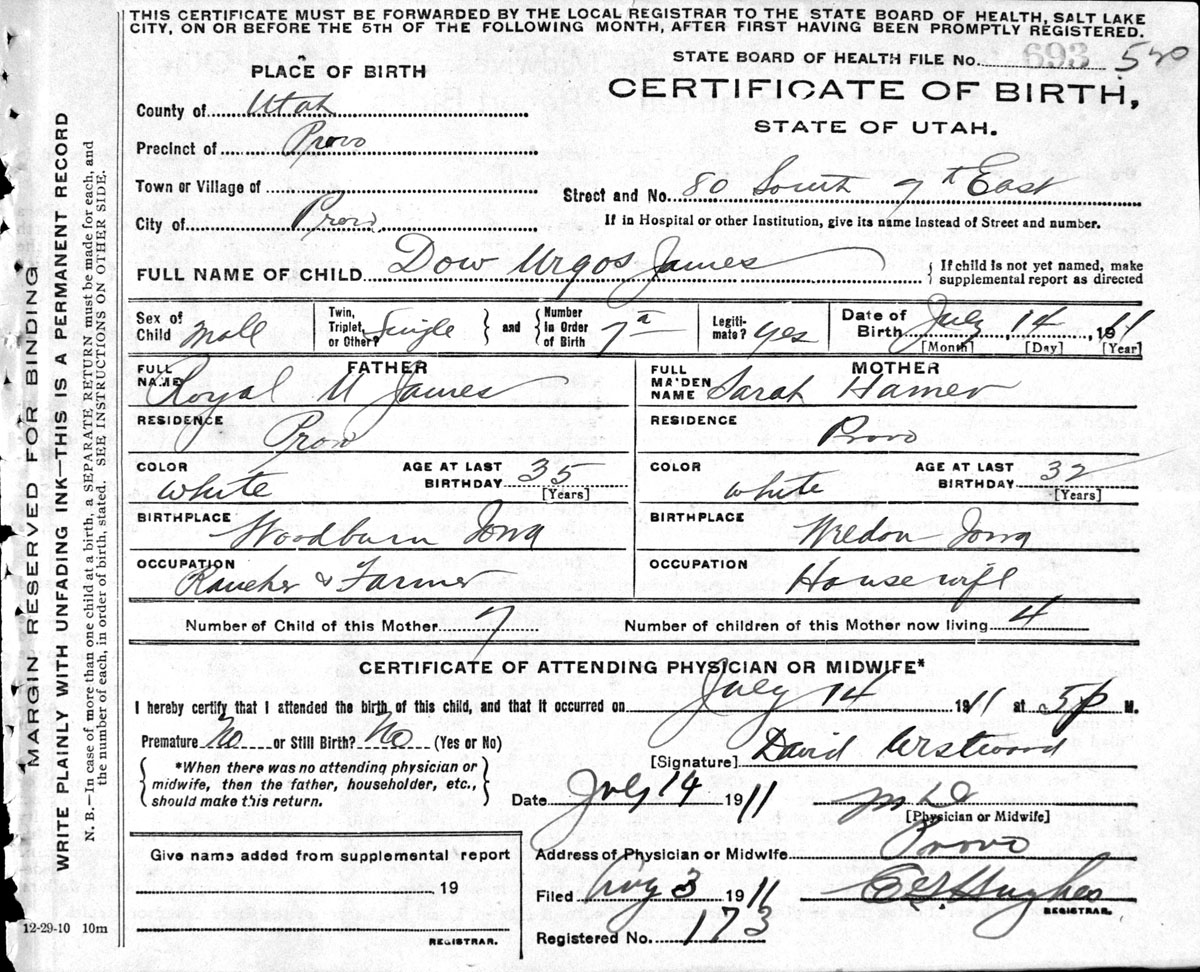 THIS CERTIFICATE MUST BE FORWARDED BY THE LOCAL REGISTRAR TO THE STATE BOARD OF HEALTH, SALT LAKE
CITY, ON OR BEFORE THE 5TH OF THE FOLLOWING MONTH, AFTER FIRST HAVING BEEN PROMPTLY REGISTERED.
MARGIN RESERVED FOR BINDING
WRITE PLAINLY WITH UNFADING INK—THIS IS A PERMANENT RECORD
N. B.—In case of more than one child at a birth, a SEPARATE RETURN must be made for each, and
the number of each, in order of birth, stated. SEE INSTRUCTIONS ON OTHER SIDE.
STATE BOARD OF HEALTH FILE No. 693 520
PLACE OF BIRTH
CERTIFICATE OF BIRTH,
STATE OF UTAH.
County of Utah
Precinct of Provo
Town or Village of
Street and No. 80 South 7th East
City of Provo
If in Hospital or other Institution, give its name instead of Street and number.
FULL NAME OF CHILD Dow Urgos James
{ If child is not yet named, make
supplemental report as directed
Sex of Child Male
Twin, Triplet, or Other? Single
and
Number in Order of Birth 7th
Legiti-mate? Yes
Date of Birth July 14, 1911
[Month] [Day] [Year]
FATHER
FULL NAME Royal M James
MOTHER
FULL MAIDEN NAME Sarah Hamer
RESIDENCE Provo
RESIDENCE Provo
COLOR White
AGE AT LAST BIRTHDAY 35 [Years]
COLOR White
AGE AT LAST BIRTHDAY 32 [Years]
BIRTHPLACE Woodburn Iowa
BIRTHPLACE Weldon Iowa
OCCUPATION Rancher & Farmer
OCCUPATION Housewife
Number of Child of this Mother 7
Number of children of this Mother now living 4
CERTIFICATE OF ATTENDING PHYSICIAN OR MIDWIFE*
I hereby certify that I attended the birth of this child, and that it occurred on July 14 1911 at 5 p M.
Premature No or Still Birth? No (Yes or No)
[Signature] David Westwood
*When there was no attending physician or
midwife, then the father, householder, etc.,
should make this return.
Date July 14 1911
M D
[Physician or Midwife]
Give name added from supplemental report
19
REGISTRAR.
Address of Physician or Midwife Provo
Filed Aug 3 1911
Hughes
REGISTRAR.
Registered No. 173
12-29-10 10m